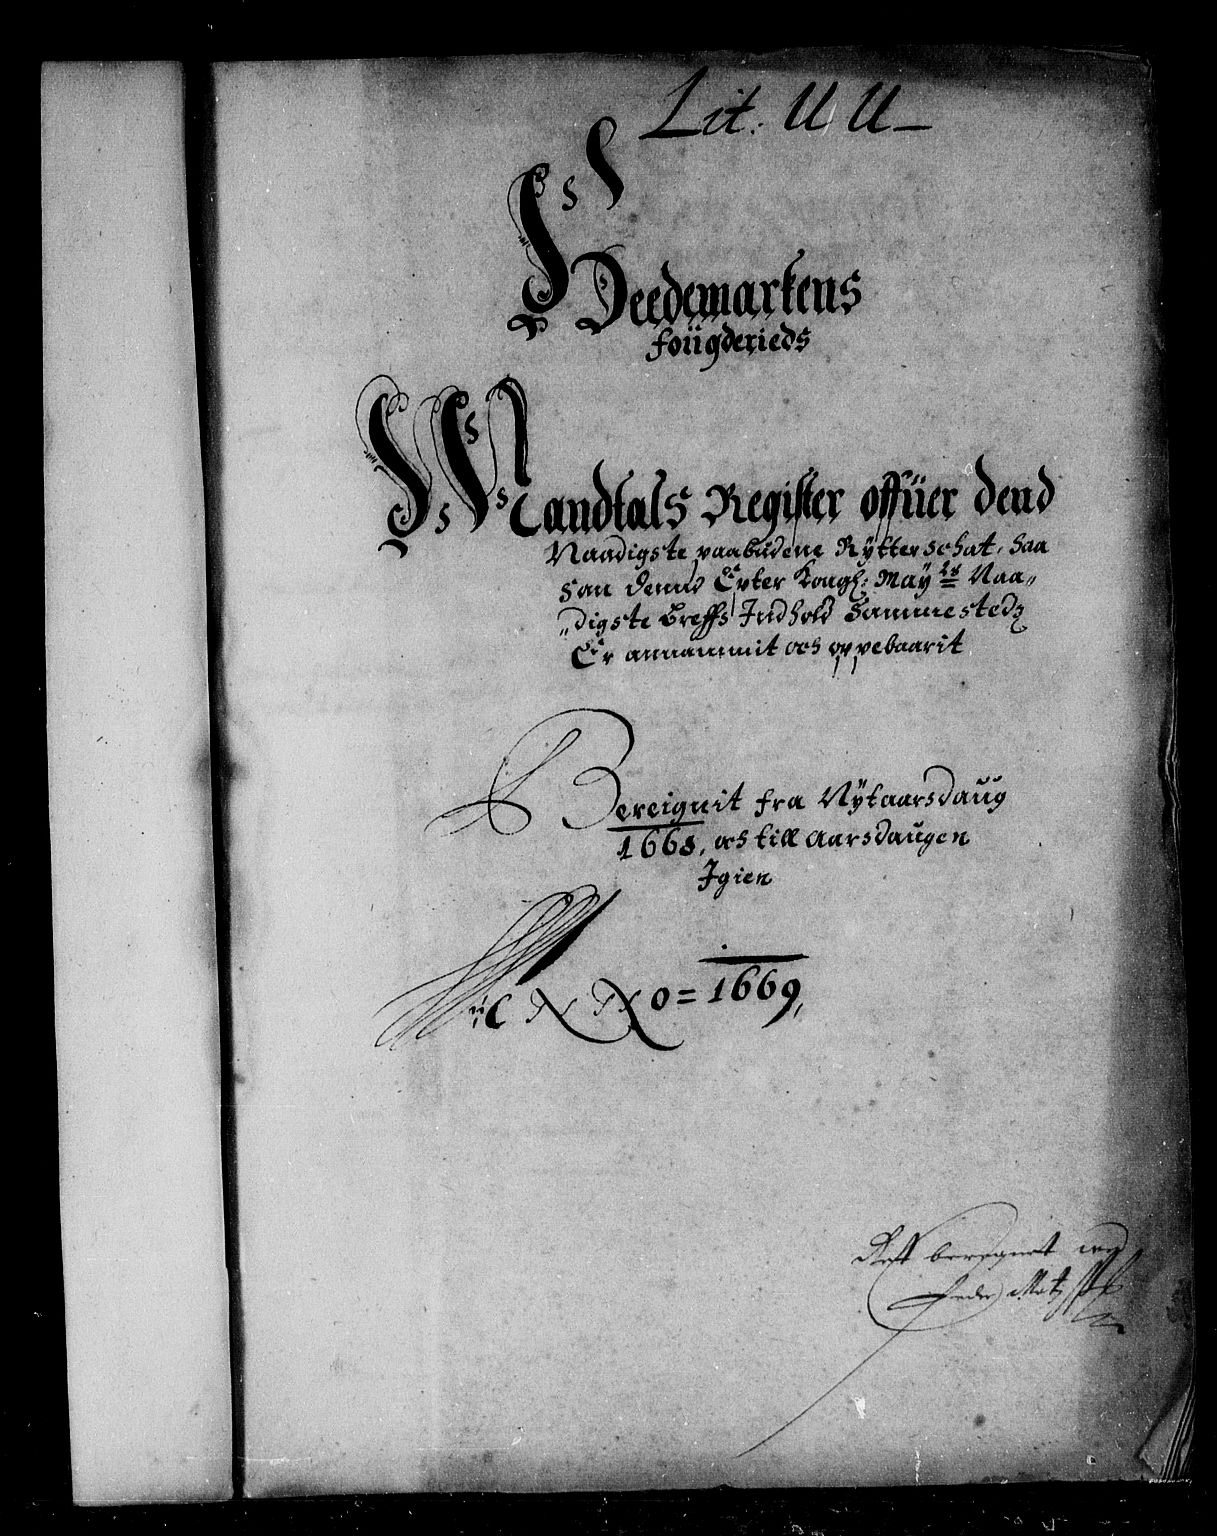 Lit. UU
Heedemarkens
foügderieds
Mandtals Register offüer dend
Naadigste paabudene Rÿtterschat, saa
som denne Epter Kongl: Maÿ Naa-
digste breffs Indhold Sammestedz
Er annammit och oppebaarit
Bereignit fra Nÿtaarsdaug
1668, och till aarsdaugen
Igien
Anno = 1669,
beregnet
Peder